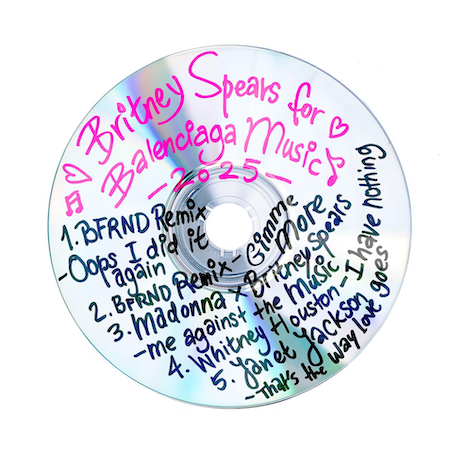 ♡ Britney Spears for ♡
♫ Balenciaga Music ♪
-2025-
1. BFRND Remix
-Oops I did it
again
2. BFRND Remix - Gimme
More
3. Madonna x Britney Spears
-me against the Music
4. Whitney Houston - I have nothing
5. Janet Jackson
-That's the way love goes